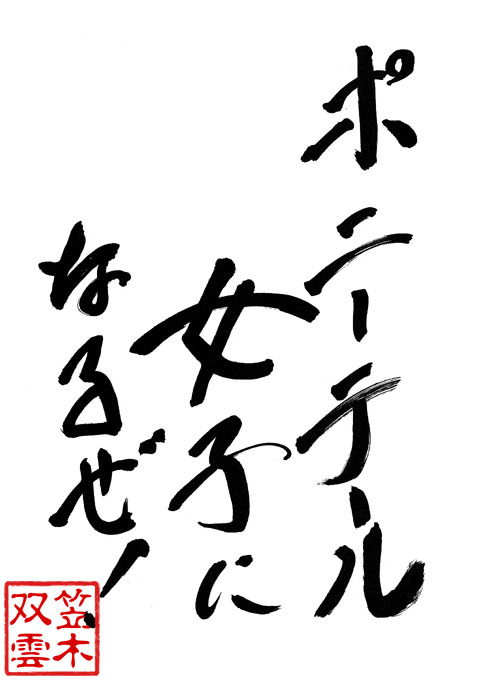 ポニーテール
女子に
なるぜ！
笠木
双雲